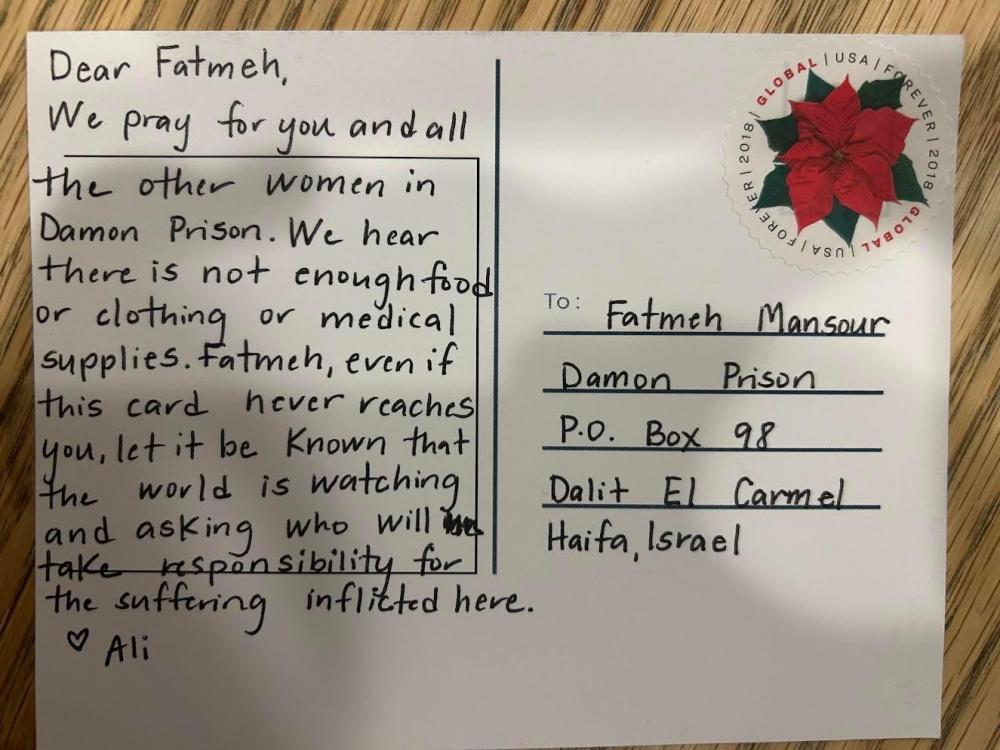 Dear Fatmeh,
We pray for you and all
the other women in
Damon Prison. We hear
there is not enough food
or clothing or medical
supplies. Fatmeh, even if
this card never reaches
you, let it be known that
the world is watching
and asking who will
take responsibility for
the suffering inflicted here.
♡ Ali
GLOBAL | USA | FOREVER | 2018
GLOBAL | USA | FOREVER | 2018
To: Fatmeh Mansour
Damon Prison
P.O. Box 98
Dalit El Carmel
Haifa, Israel